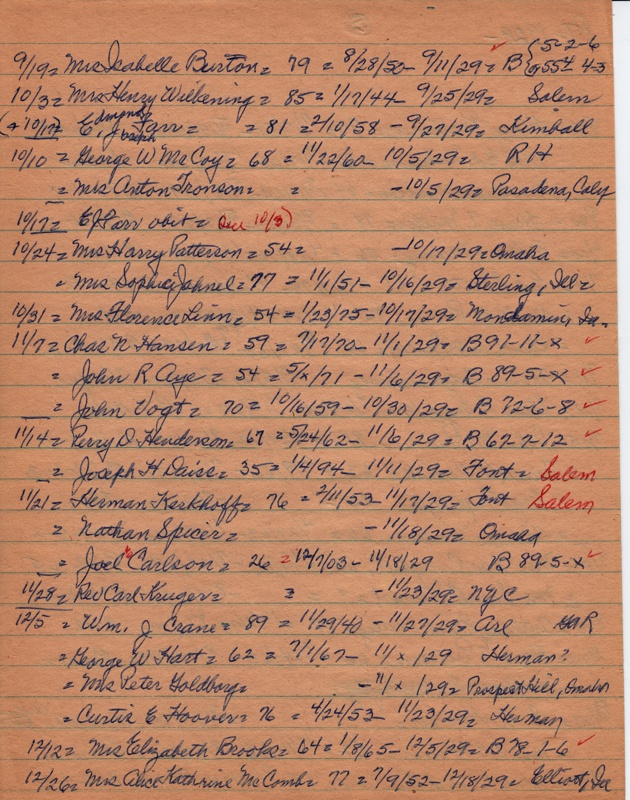 {5-2-6
9/19 = Mrs Isabelle Burton = 79 = 8/28/50 - 9/11/29 = B {or 55 4-3
10/3 = Mrs Henry Wilkening = 85 = 1/17/44 - 9/25/29 = Salem
Edmund
(+ 10/17) E. J. Farr = = 81 = 2/10/58 - 9/27/29 = Kimball
Joseph
10/10 = George W McCoy = 68 = 11/22/60 - 10/5/29 = R H
= Mrs Anton Tronson = = - 10/5/29 = Pasadena, Caly
10/17 = EJ Farr obit = (see 10/3)
10/24 = Mrs Harry Patterson = 54 = - 10/17/29 = Omaha
= Mrs Sophie Jahnel = 77 = 11/1/51 - 10/16/29 = Sterling, Ill =
10/31 = Mrs Florence Linn = 54 = 1/23/75 - 10/17/29 = Mondamin, Ia.
11/7 = Chas N Hansen = 59 = 7/17/70 - 11/1/29 = B 91-11-x
= John R Aye = 54 = 5/x/71 - 11/6/29 = B 89-5-x
= John Vogt = 70 = 10/16/59 - 10/30/29 = B 72-6-8
11/14 = Perry D Henderson = 67 = 5/24/62 - 11/6/29 = B 62-2-12
= Joseph H Daise = 35 = 1/4/94 - 11/11/29 = Font = Salem
11/21 = Herman Kerkhoff = 76 = 2/11/53 - 11/17/29 = Font Salem
= Nathan Spicer = - 11/18/29 = Omaha
= Joel Carlson = 26 = 12/7/03 - 11/18/29 B 89-5-x
11/28 = Rev Carl Kruger = = - 11/23/29 = NYC
12/5 = Wm. J Crane = 89 = 11/29/40 - 11/27/29 = Arl GAR
= George W Hart = 62 = 7/1/67 - 11/x/29 Herman?
= Mrs Peter Goldborg = - 11/x/29 = Prospect Hill, Omaha
= Curtis E Hoover = 76 = 4/24/53 - 11/23/29 = Herman
12/12 = Mrs Elizabeth Brooks = 64 = 1/8/65 - 12/5/29 = B 78-1-6
12/26 = Mrs Alice Kathrine McComb = 77 = 7/9/52 - 12/18/29 = Elliott, Ia